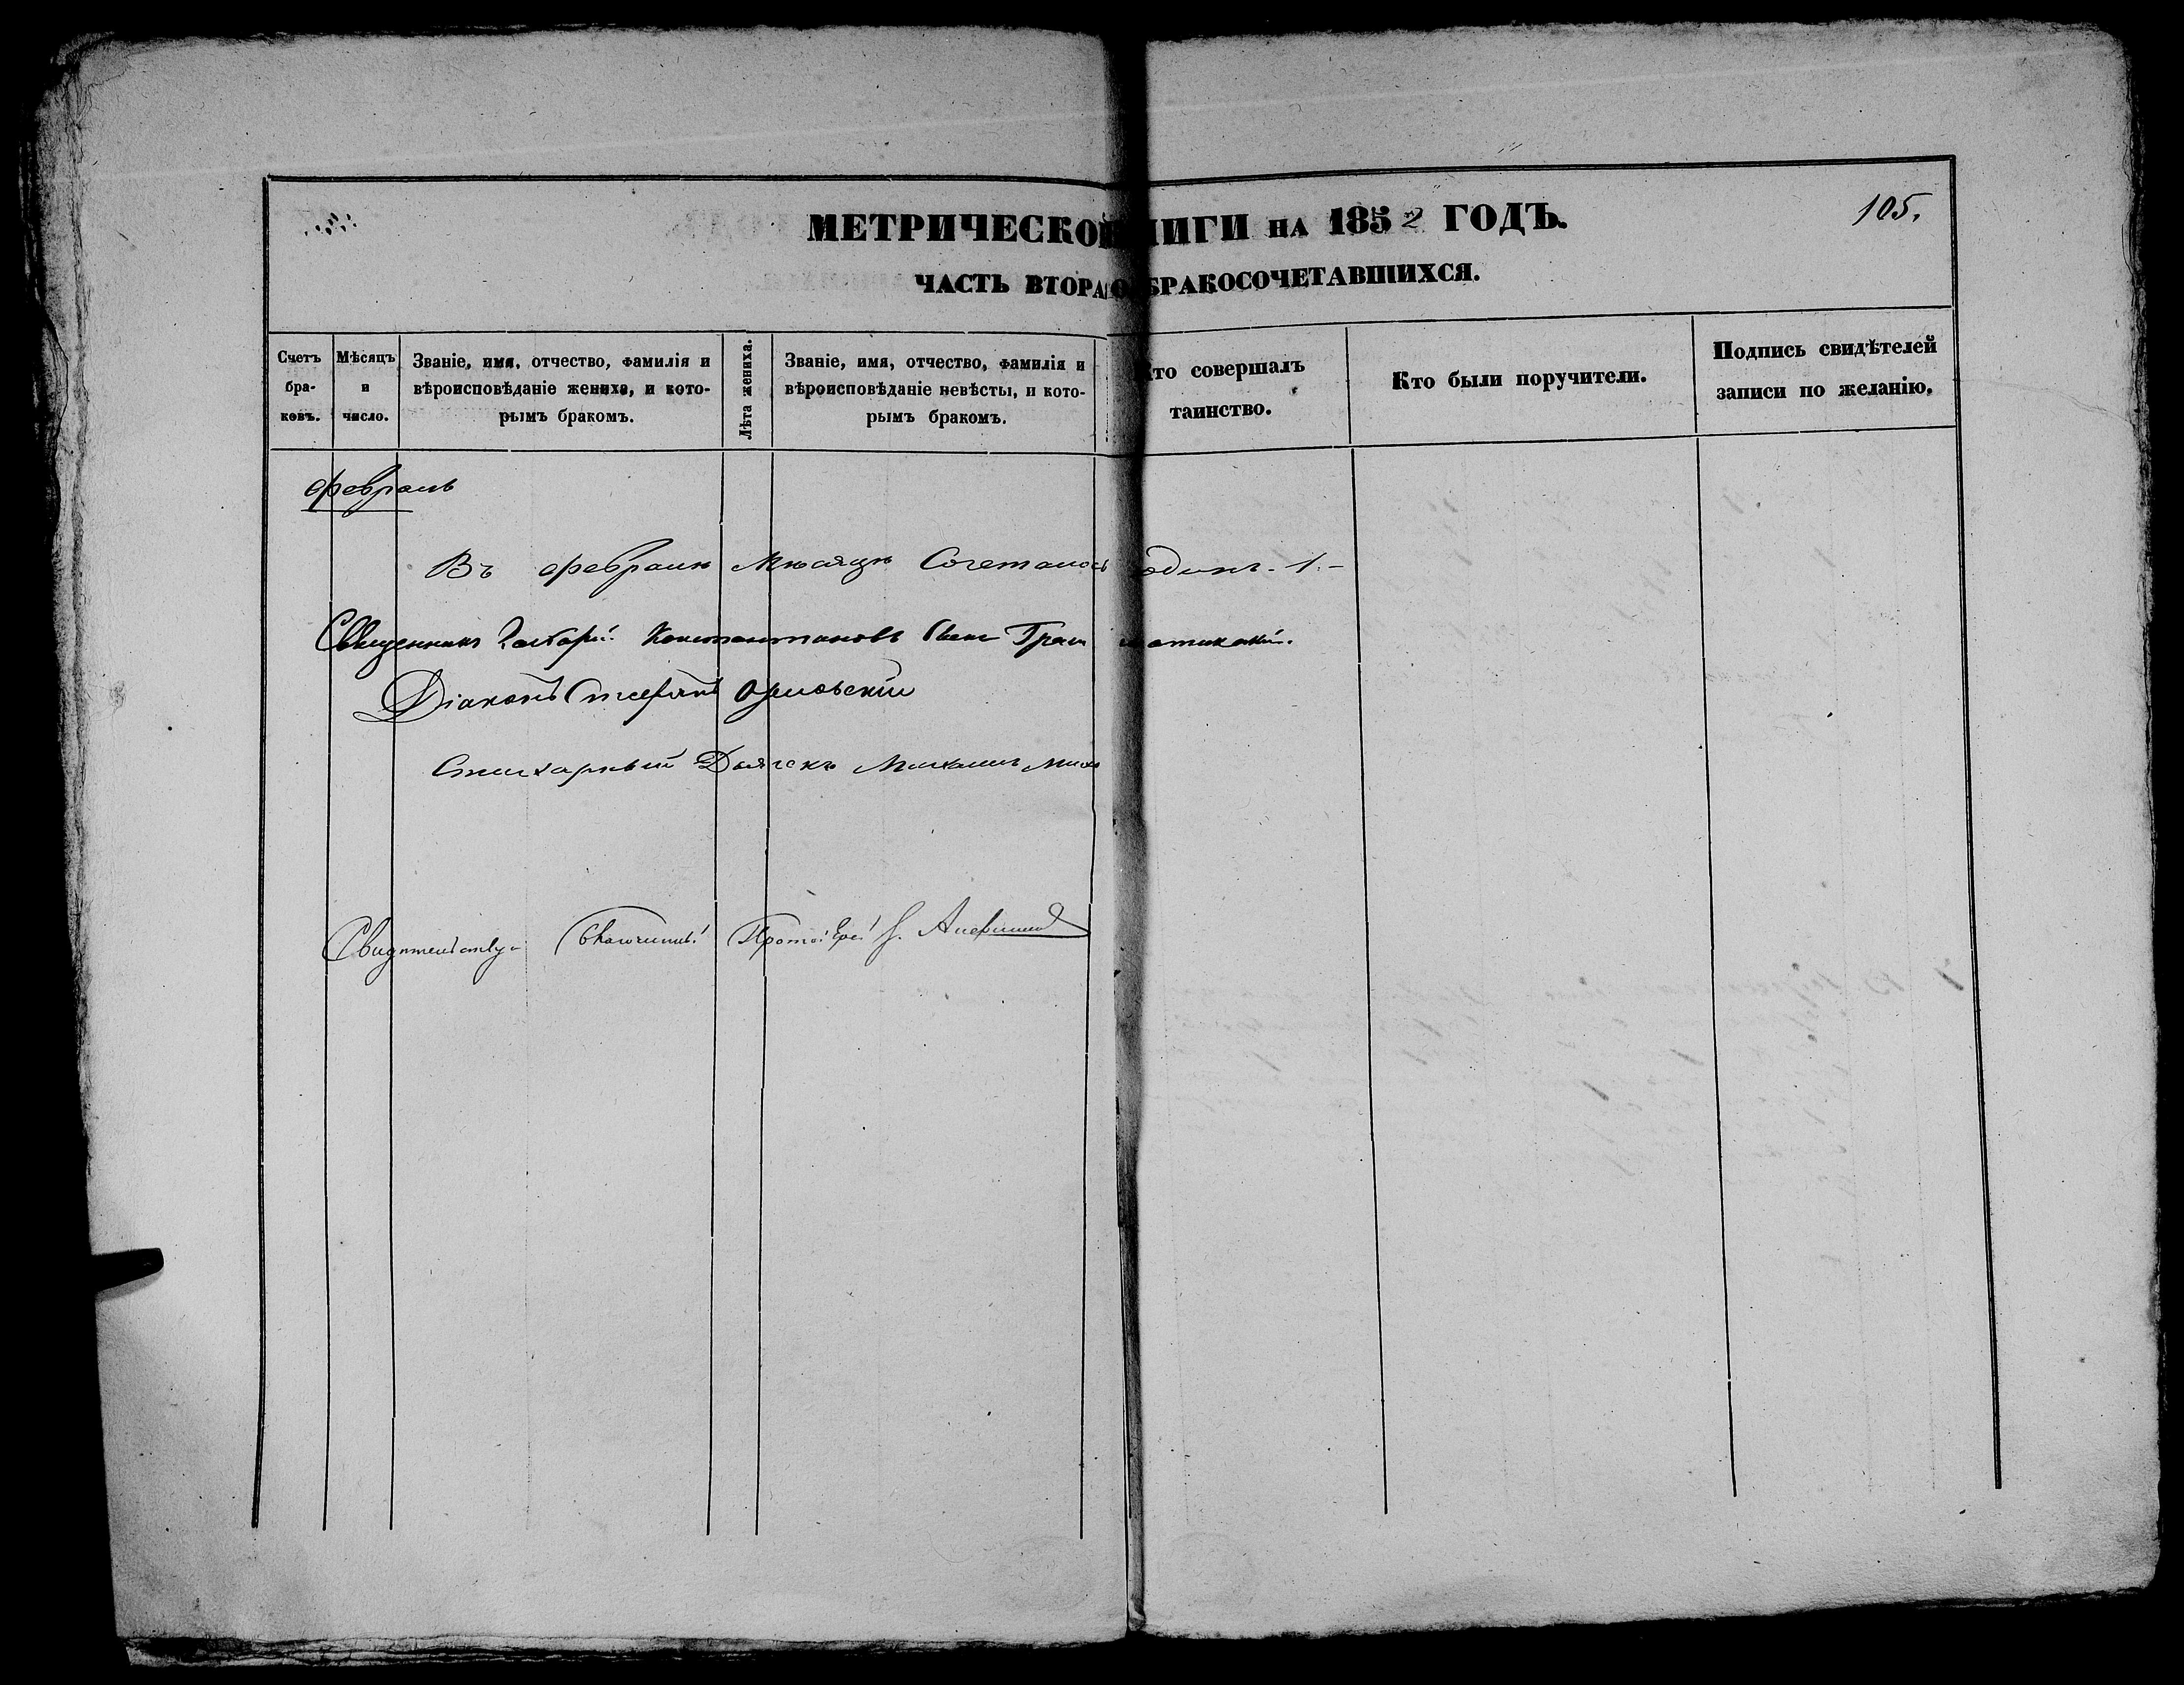 МЕТРИЧЕСКОЙ НИГИ НА 1852 ГОДЪ.
105.
ЧАСТЬ ВТОРАЯ О БРАКОСОЧЕТАВШИХСЯ.
Счетъ бра-ковъ.
Мѣсяцъ и число.
Званіе, имя, отчество, фамилія и
вѣроисповѣданіе жениха, и кото-
рымъ бракомъ.
Лѣта жениха.
Званіе, имя, отчество, фамилія и
вѣроисповѣданіе невѣсты, и кото-
рымъ бракомъ.
Кто совершалъ
таинство.
Кто были поручители.
Подпись свидѣтелей
записи по желанію.
февраль
Въ февралѣ Мѣсяцѣ Сочеталось одинъ. 1.-
Священникъ Константиновъ Грамматикакій.
Діаконъ Стефанъ Орловскій
Стихарный Дьячекъ Михаилъ
Свидѣтельствую Благочинный Протоіерей